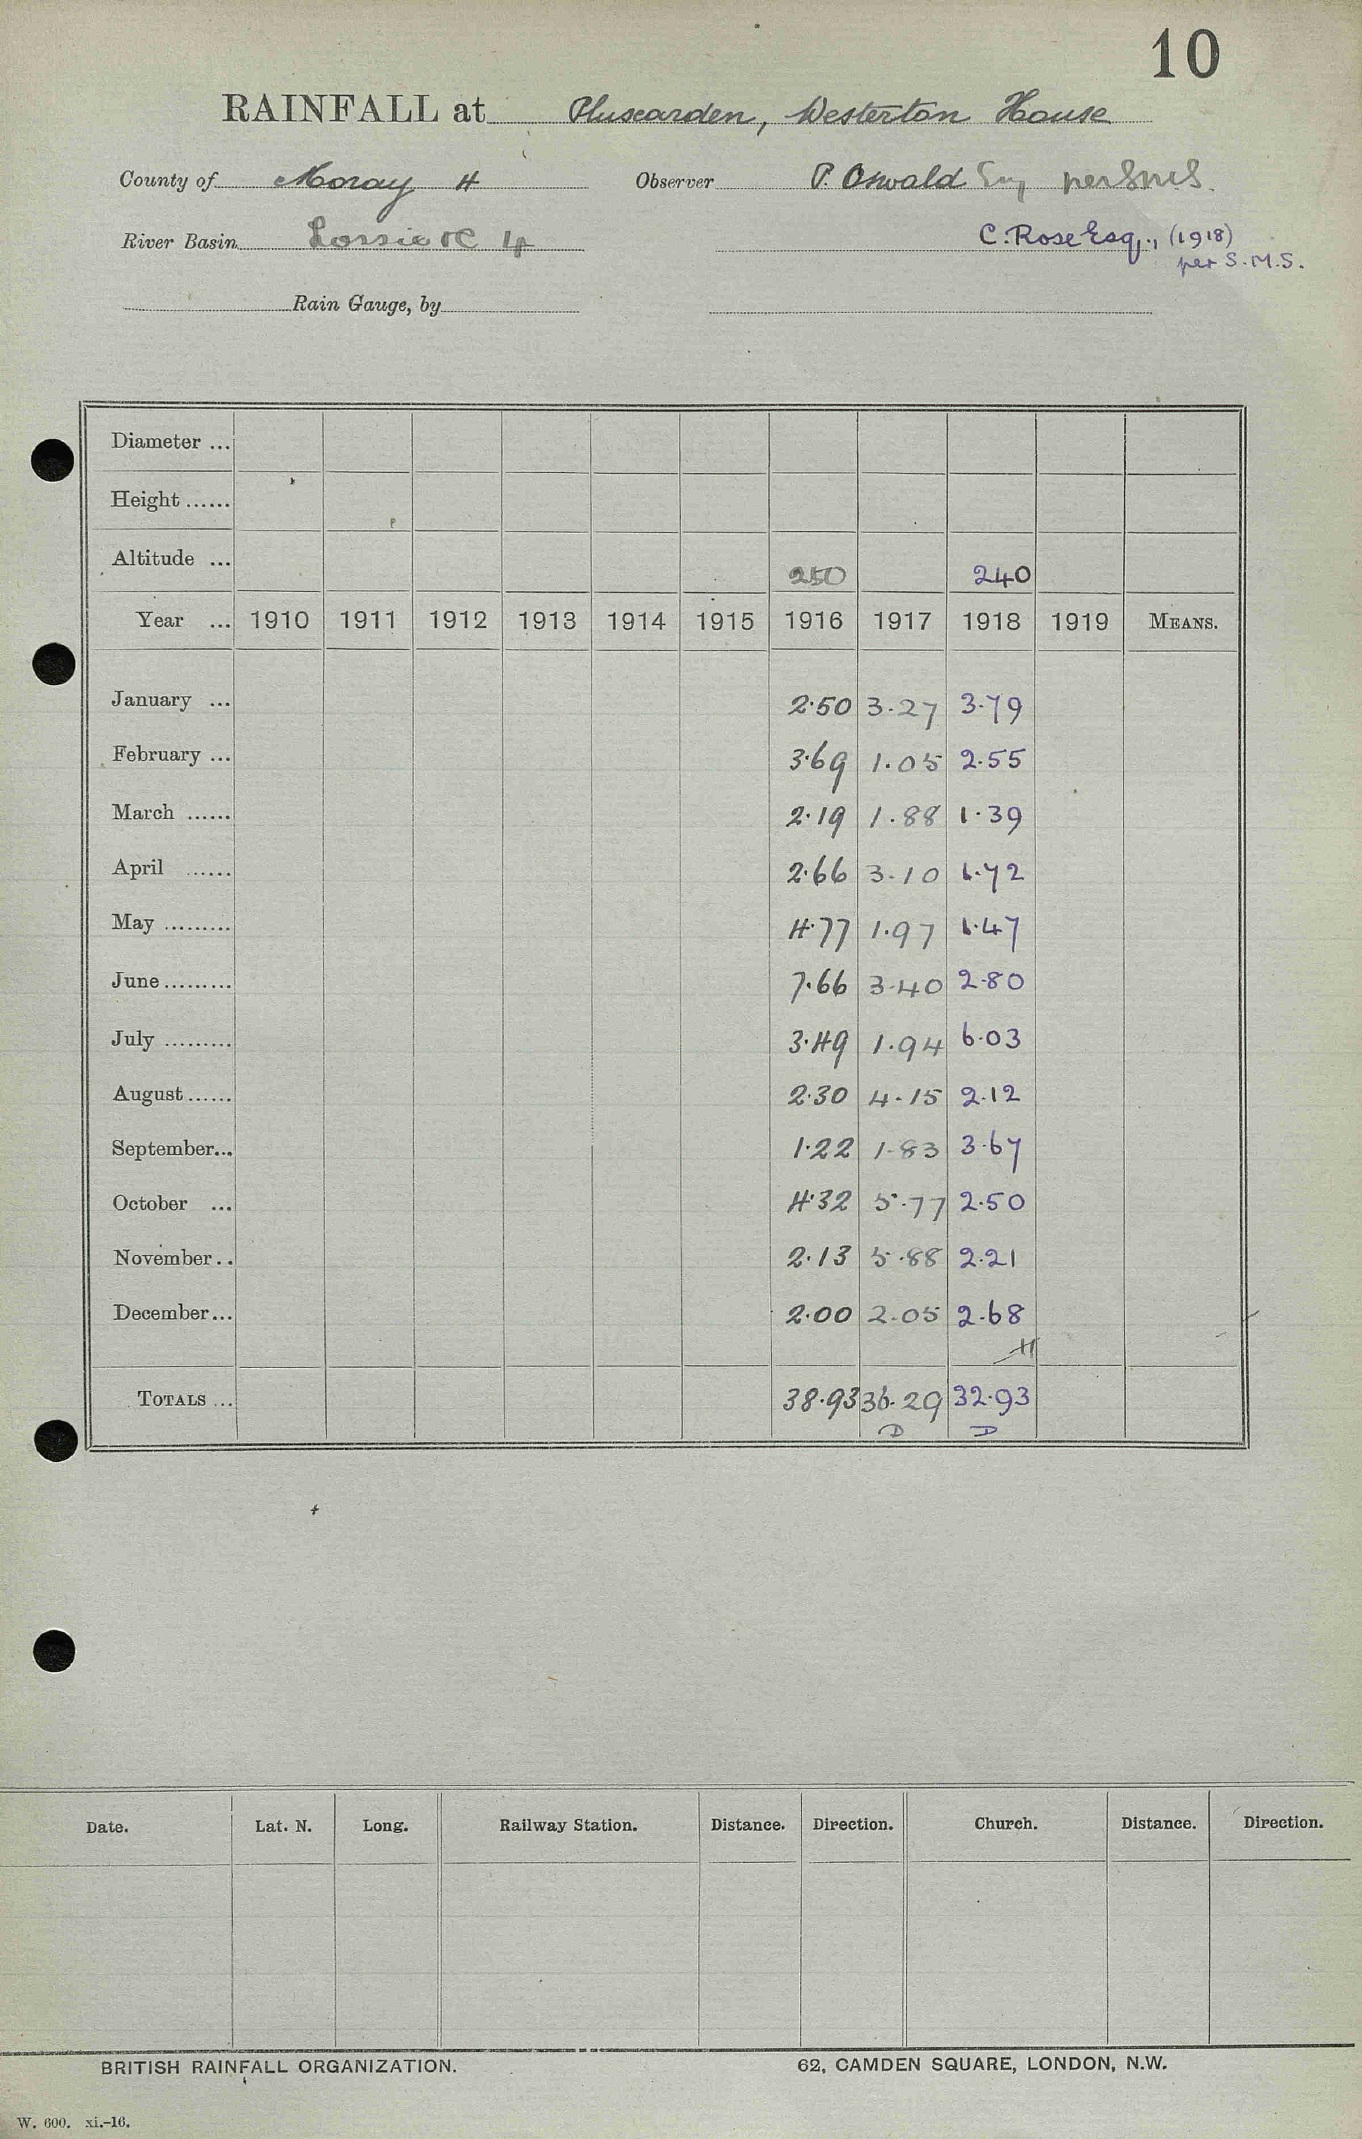 10
RAINFALL at Pluscarden, Westerton House
County of Moray H Observer P. Oswald Esq per SMS.
River Basin Lossie 4 C. Rose Esq., (1918)
per S.M.S.
Rain Gauge, by
Diameter ...
Height ......
Altitude ... 250 240
Year ... 1910 1911 1912 1913 1914 1915 1916 1917 1918 1919 MEANS.
January ... 2.50 3.27 3.79
February ... 3.69 1.05 2.55
March ...... 2.19 1.88 1.39
April ...... 2.66 3.10 1.72
May ......... 4.77 1.97 1.47
June ......... 7.66 3.40 2.80
July ......... 3.49 1.94 6.03
August ...... 2.30 4.15 2.12
September... 1.22 1.83 3.67
October ... 4.32 5.77 2.50
November .. 2.13 5.88 2.21
December... 2.00 2.05 2.68
TOTALS ... 38.93 36.29 32.93
D D
Date. Lat. N. Long. Railway Station. Distance. Direction. Church. Distance. Direction.
BRITISH RAINFALL ORGANIZATION. 62, CAMDEN SQUARE, LONDON, N.W.
W. 600. xi.-16.